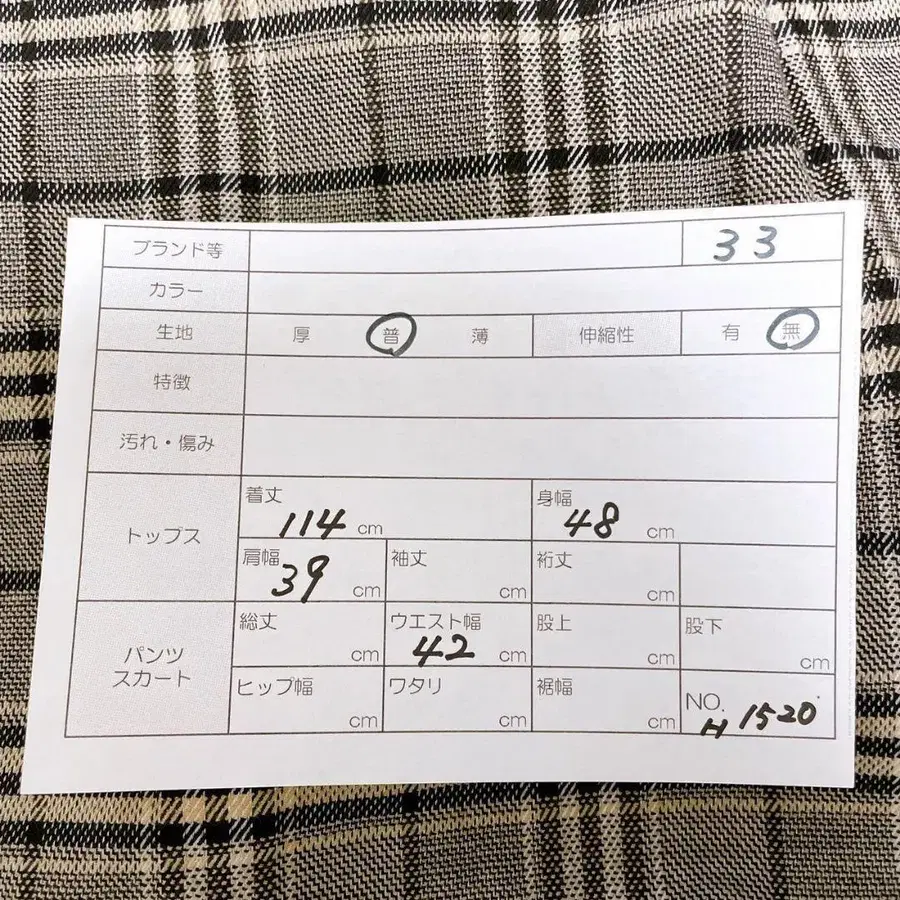 ブランド等 33
カラー
生地 厚 普 薄 伸縮性 有 無
特徴
汚れ・傷み
トップス
着丈 114 cm 身幅 48 cm
肩幅 39 cm 袖丈 cm 裄丈 cm
パンツ
スカート
総丈 cm ウエスト幅 42 cm 股上 cm 股下 cm
ヒップ幅 cm ワタリ cm 裾幅 cm NO. H 1520